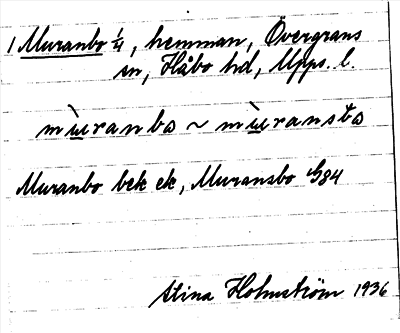 1 Muranbo 1/4, hemman, Övergrans
sn, Håbo hd, Upps. l.
mùɯranbɷ ~ mùɯranstɷ
Muranbo bek ek, Muransbo
Stina Holmström 1936